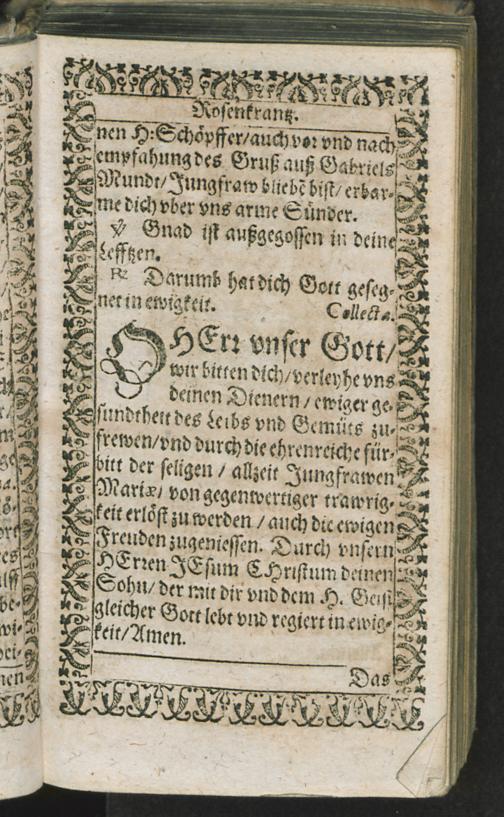 Rosenkrantz.
nen H: Schöpffer/auch vor vnd nach
empfahung des Gruß auß Gabriels
Mundt/Jungfraw bliebē bist/erbar-
me dich vber vns arme Sünder.
℣ Gnad ist außgegossen in deine
Lefftzen.
℟ Darumb hat dich Gott geseg-
net in ewigkeit. Collecta.
O HErr vnser Gott/
wir bitten dich/verleyhe vns
deinen Dienern / ewiger ge-
sundtheit des Leibs vnd Gemüts zu-
frewen/vnd durch die ehrenreiche für-
bitt der seligen / allzeit Jungfrawen
Mariæ/ von gegenwertiger trawrig-
keit erlöst zu werden / auch die ewigen
Freuden zugeniessen. Durch vnsern
HErren JEsum CHristum deinen
Sohn/ der mit dir vnd dem H. Geist
gleicher Gott lebt vnd regiert in ewig-
keit/Amen.
Das